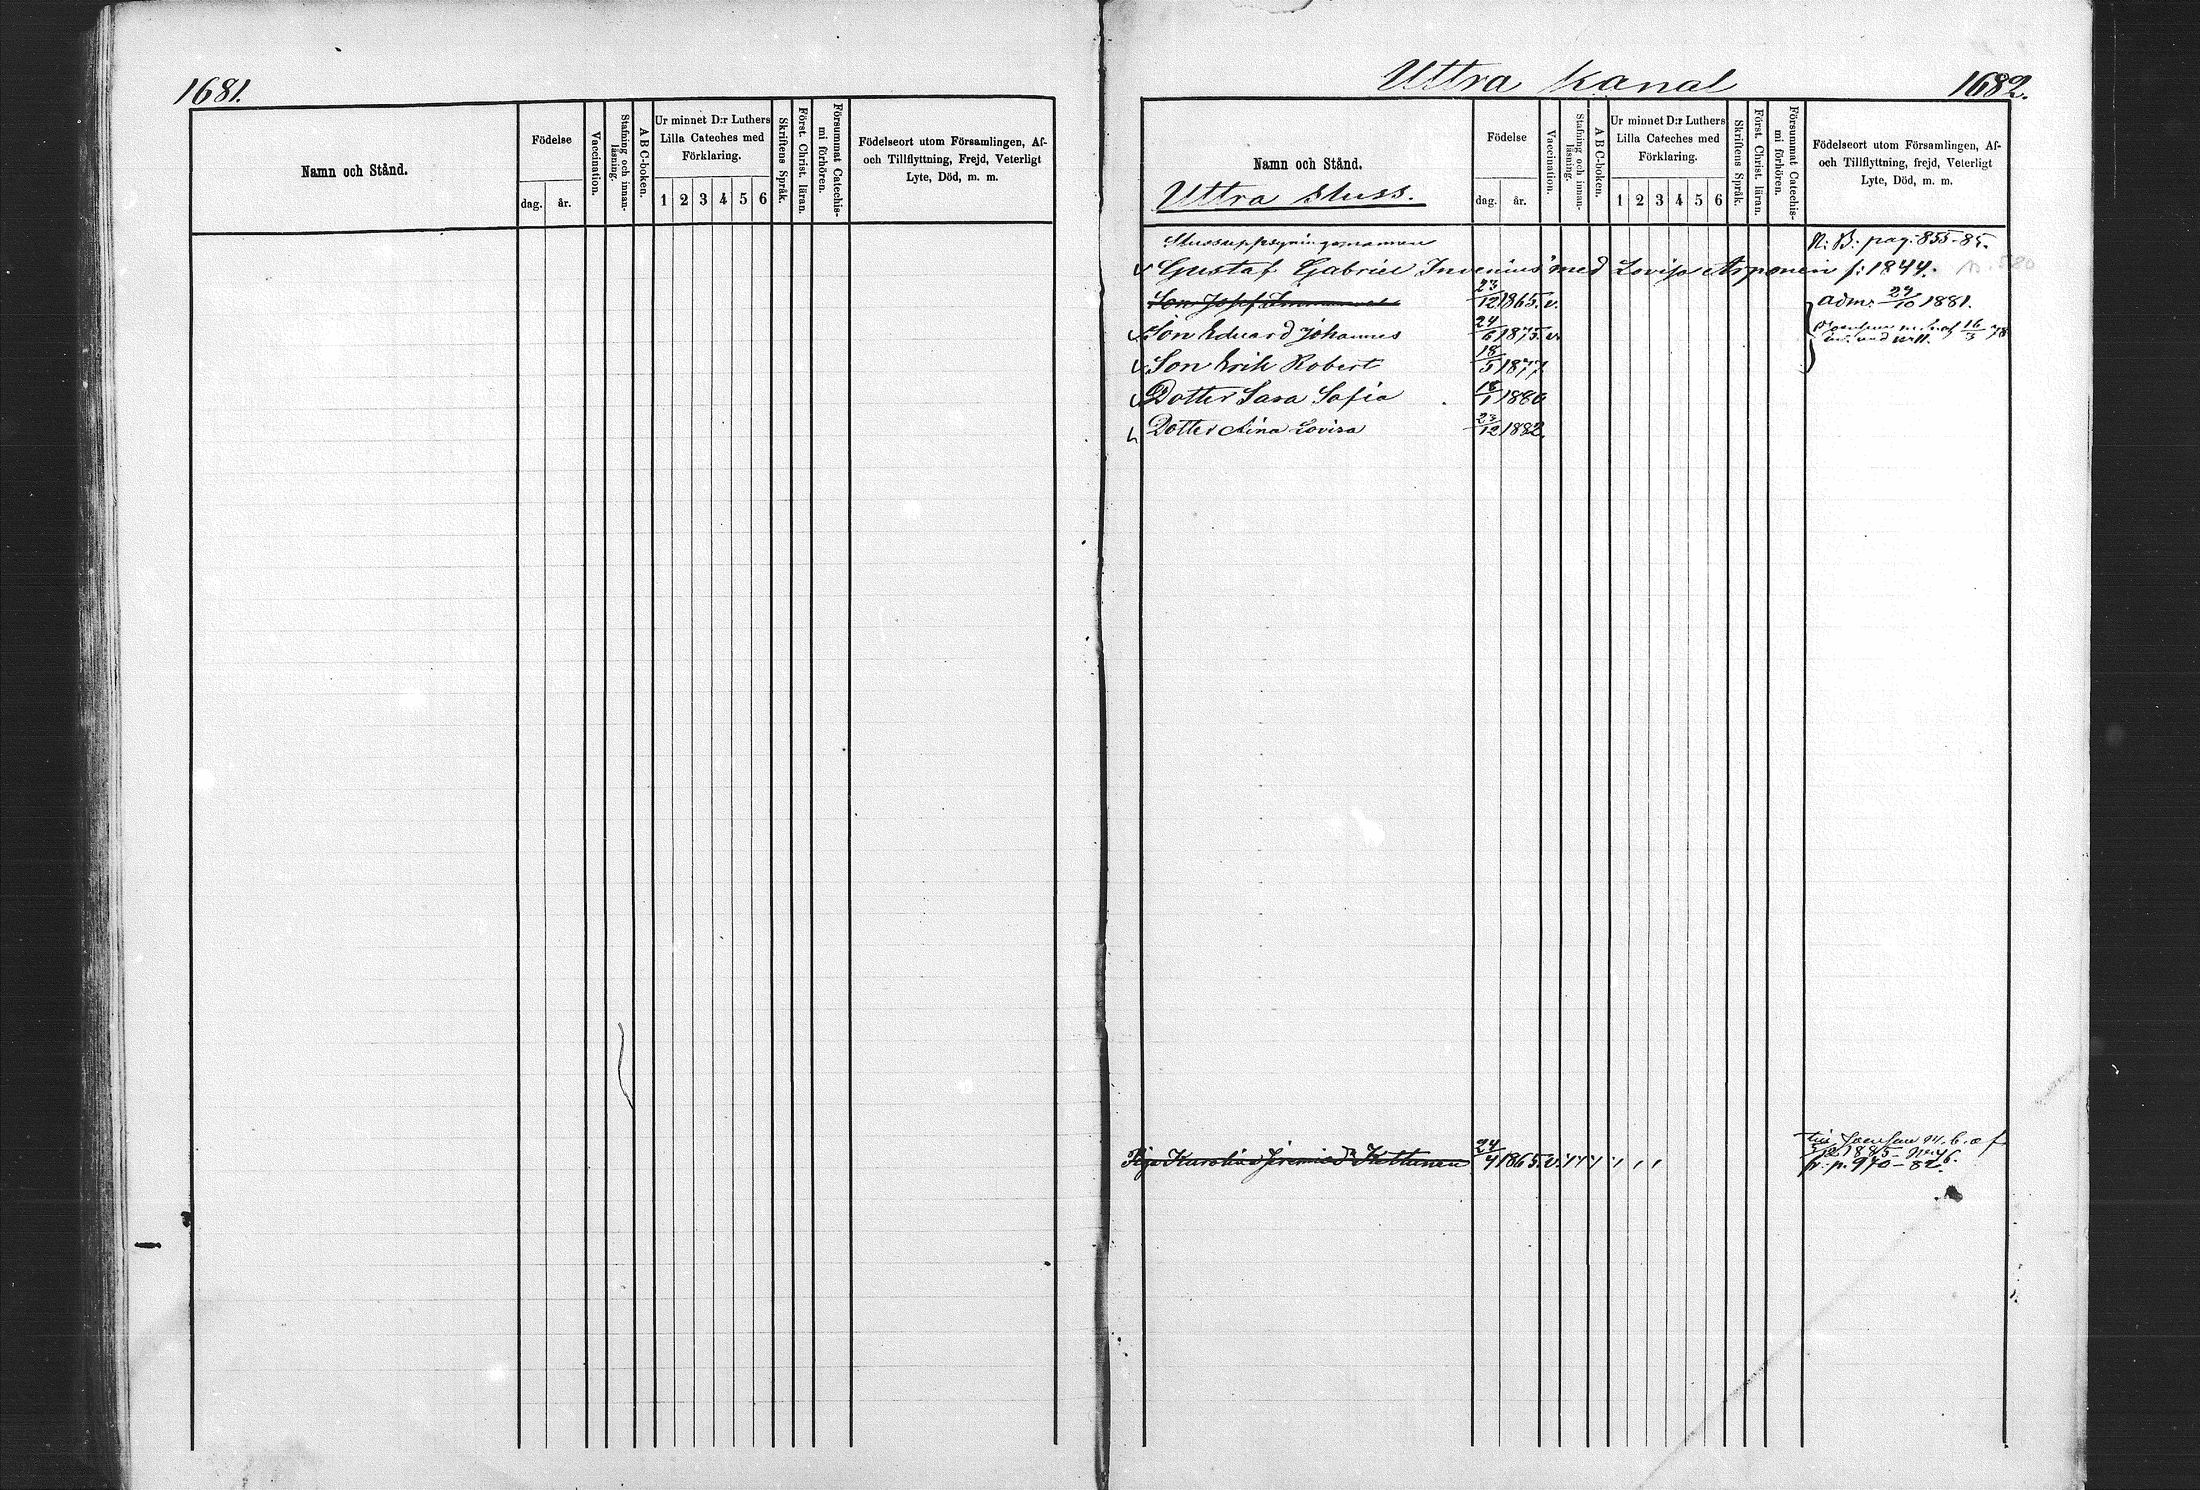 1681.
Namn och Stånd.
Födelse
dag.
år.
Vaccination.
Stafning och innan-
läsning.
ABC-boken.
Ur minnet D:r Luthers
Lilla Cateches med
Förklaring.
1 2 3 4 5 6
Skriftens Språk.
Först. Christ. läran.
Försummat Catechis-
mi förhören.
Födelseort utom Församlingen, Af-
och Tillflyttning, Frejd, Veterligt
Lyte, Död, m. m.
Uttra Kanal
1682.
Namn och Stånd.
Uttra Sluss.
Födelse
dag.
år.
Vaccination.
Stafning och innan-
läsning.
ABC-boken.
Ur minnet D:r Luthers
Lilla Cateches med
Förklaring.
1 2 3 4 5 6
Skriftens Språk.
Först. Christ. läran.
Försummat Catechis-
mi förhören.
Födelseort utom Församlingen, Af-
och Tillflyttning, frejd, Veterligt
Lyte, Död, m. m.
Slussuppsyningsmannen N. B. pag: 855-85.
Gustaf Gabriel Invenius med Lovisa Asponen f: 1844.
Son Josef 23/12 1865. v. adm. 24/10 1881.
Son Eduard Johannes 24/6 1875. v. 16/3 78
Son Erik Robert 18/5 1877
Dotter Sara Sofia 18/1 1880
Dotter Aina Lovisa 23/12 1882.
Piga Karolina Kettunen 24/4 1865. v. till Joensuu
1885
fr. p. 970-82.